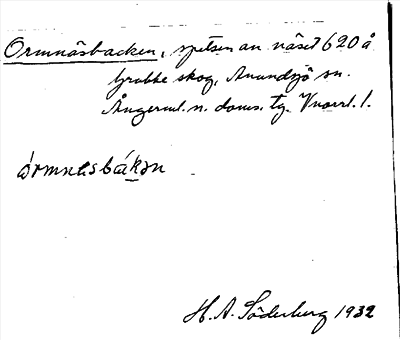 Ormnäsbacken, spetsen av näset 620 å
Grubbe skog, Anundsjö sn.
Ångerml. n. doms. tg. Vnorrl. l.
órmnesbákən
H. A. Söderberg 1932